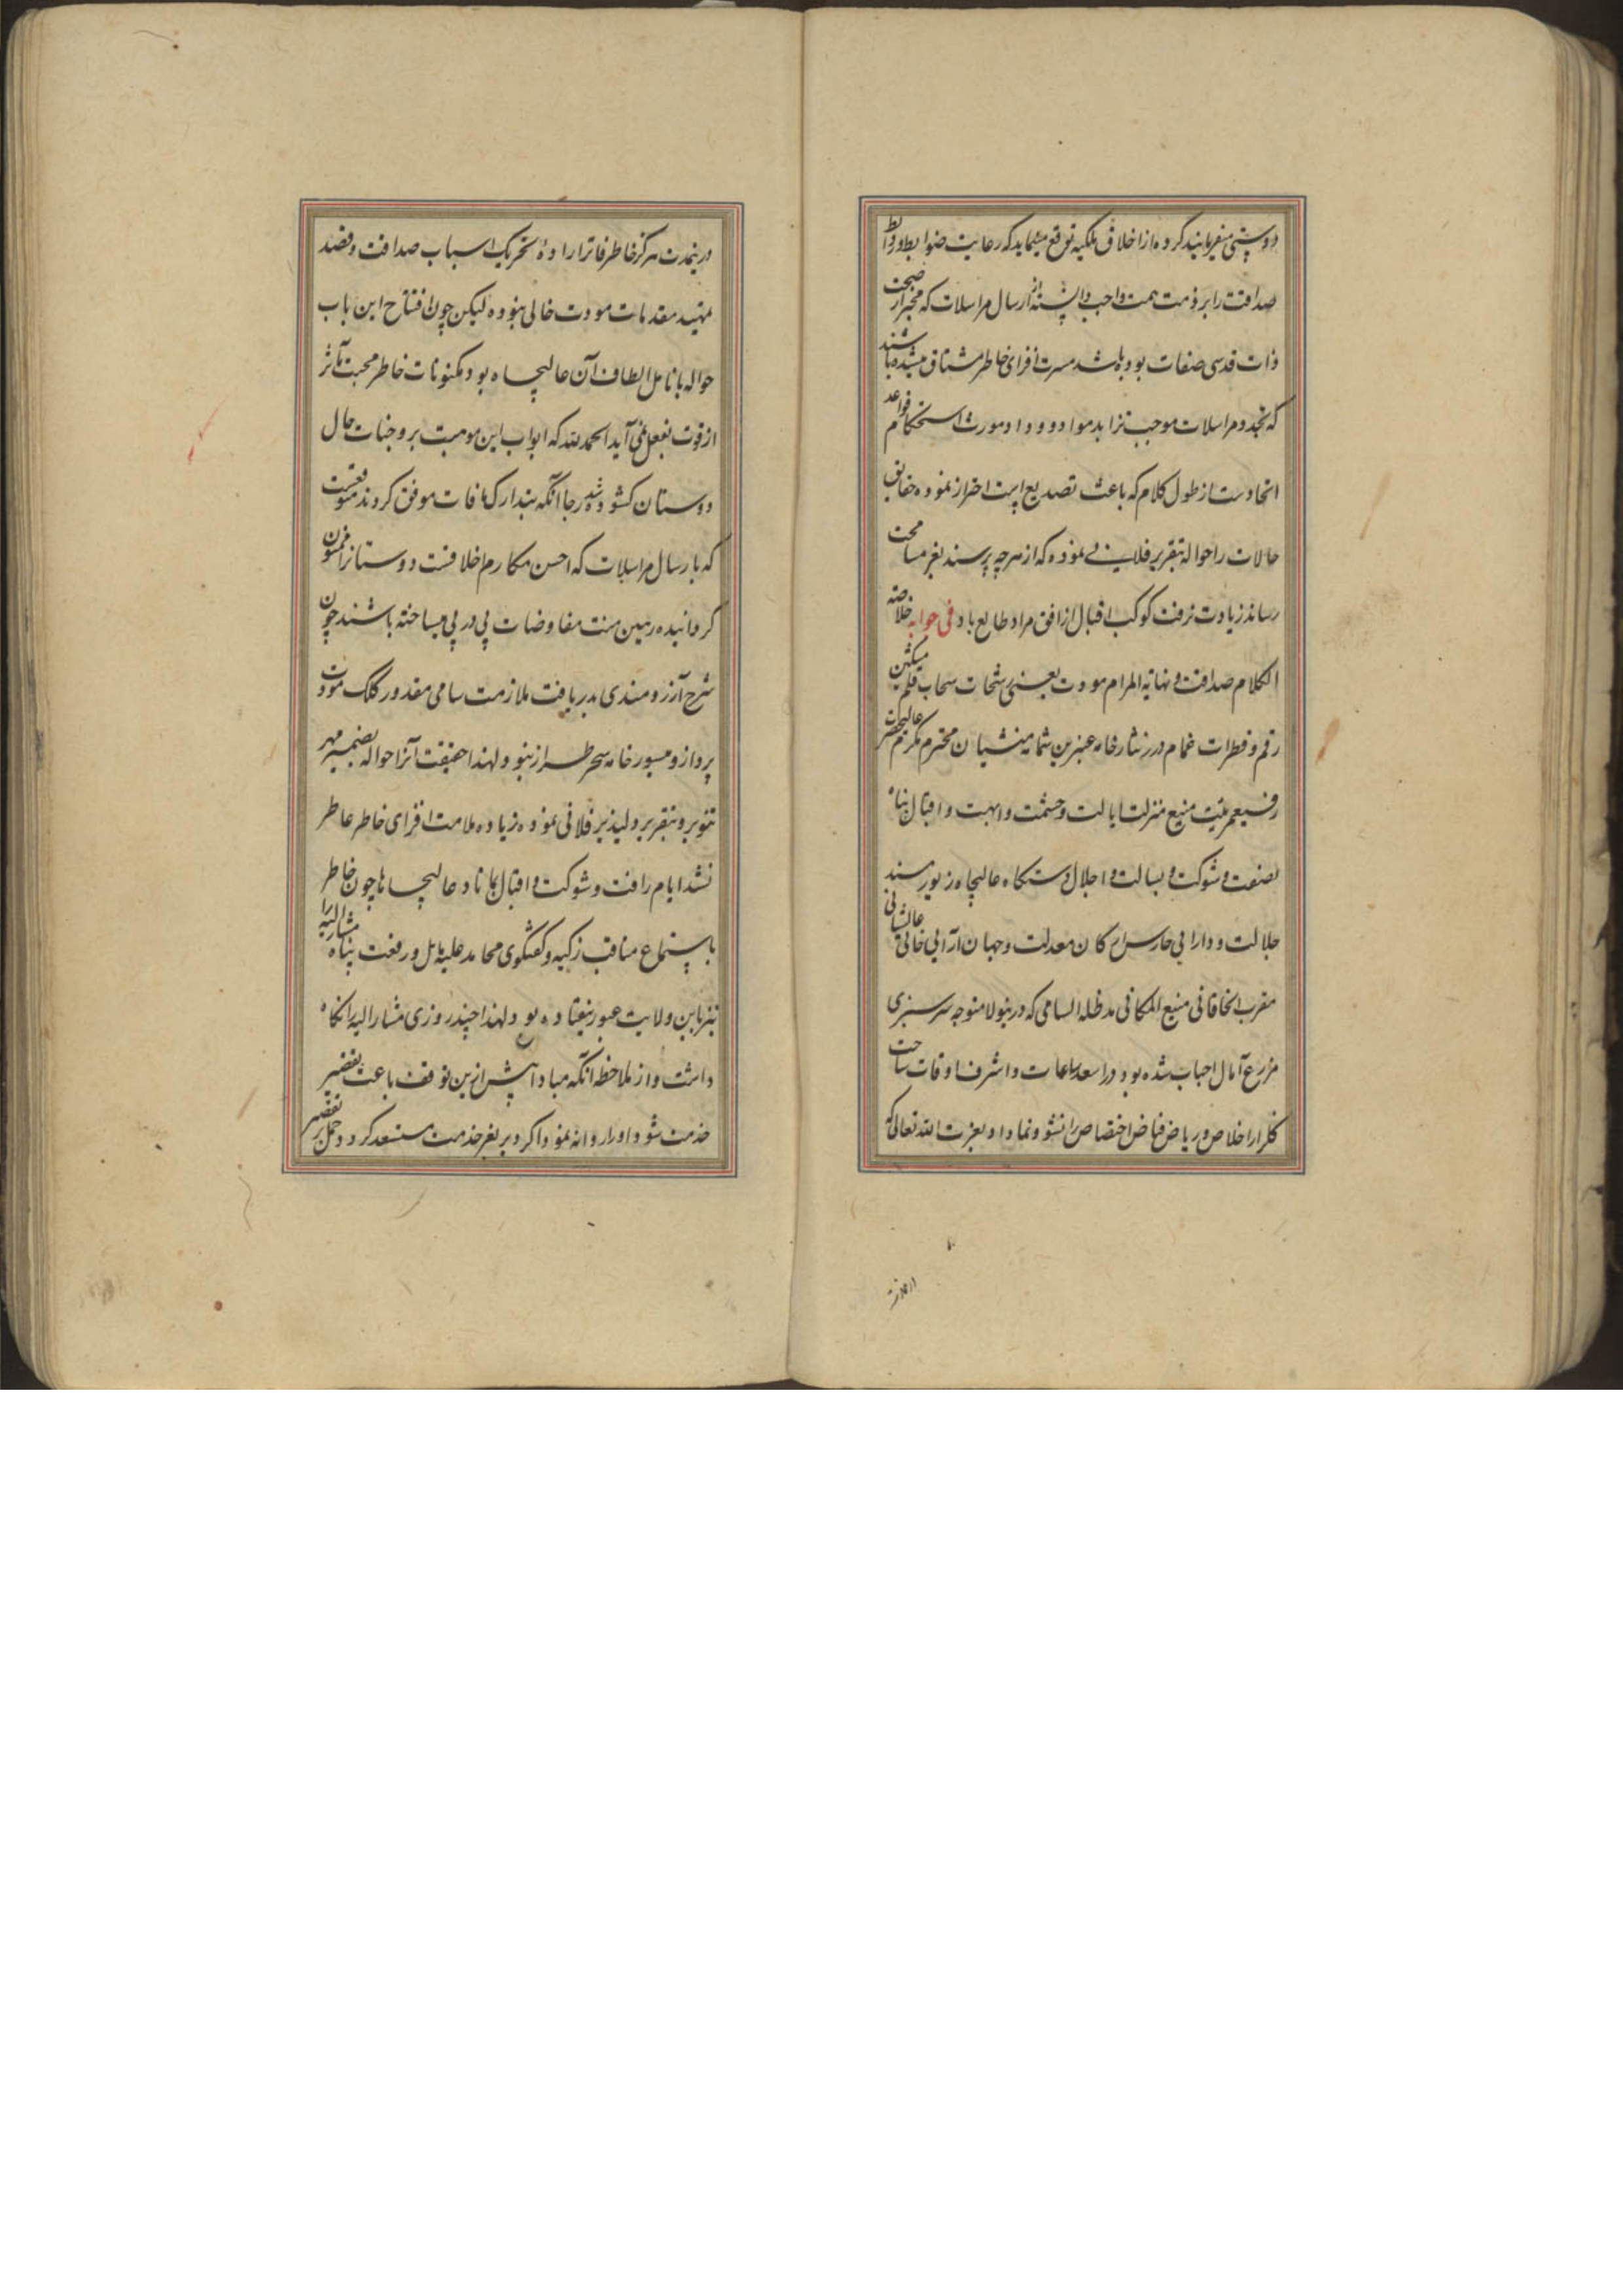 دوستی میفرمایند کرده از اخلاق ملکیه توقع مینماید که رعایت ضوابط و روابط
صداقت را بر ذمت همت واجب دانسته از ارسال مراسلات که مخبر از صحت
ذات قدسی صفات بوده باشد مسرت افزای خاطر مشتاق میشده باشند
که تجدد مراسلات موجب تزاید مواد و داد و مورث استحکام قواعد
اتحادست از طول کلام که باعث تصدیع است احتراز نموده حقایق
حالات را حواله بتقریر فلانی نموده که از هر چه پرسند بعز مسامحت
رساند زیادت نرفت کوکب اقبال از افق مراد طالع باد فی جوابه خلاصة
الکلام صداقت و نهایة المرام مودت یعنی رشحات سحاب قلم مشکین
رقم و قطرات غمام درر نثار خامه عنبرین شمامه منشیان محترم مکرم عالیحضرت
رفیعمرتبت منیع منزلت ایالت و حشمت و ابهت و اقبال پناه
نصفت و شوکت و بسالت و اجلال دستکاه عالیجاه زیور مسند
جلالت و دارایی حارس ارکان معدلت و جهان آرایی خانی عالیشانی
مقرب الخاقانی منیع المکانی مد ظله السامی که درینولا متوجه سرسبزی
مزارع آمال احباب شده بود در اسعد ساعات و اشرف اوقات ساحت
کلزار اخلاص و ریاض فیاض اختصاص را نشو و نما داد بعزت الله تعالی که
درینمدت هرکز خاطر فاتر از ارادهٔ تحریک اسباب صداقت و قصد
تمهید مقدمات مودت خالی نبوده لیکن چون افتتاح این باب
حواله بانامل الطاف آن عالیجاه بود مکنونات خاطر محبت مآثر
از قوت بفعل نمی آید الحمد لله که ابواب این موهبت بر وجنات حال
دوستان کشوده شد رجا آنکه بتدارک مافات موفق کردند متوقعست
که بارسال مراسلات که احسن مکارم اخلاقست دوستانرا ممنون
کردانیده رهین منت مفاوضات پی در پی میساخته باشند چون
شرح آرزومندی بدریافت ملازمت سامی مقدور کلک مودت
پرداز و میسور خامه سحر طراز نبود لهذا حقیقت آنرا حواله بضمیر مهر
تنویر و بتقریر دلپذیر فلانی نموده زیاده ملامت افزای خاطر عاطر
نشد ایام رافت و شوکت و اقبال بماناد عالیجاها چون خاطر
باستماع مناقب زکیه و کفتکوی محامد علیه مایل و رفعت پناه مشارالیه را
نیز باین ولایت عبور نیفتاده بود لهذا چند روزی مشارالیه را نکاه
داشت و از ملاحظه آنکه مبادا بیش ازین توقف باعث تقصیر
خدمت شود او را روانه نمود اکر دیر بعز خدمت مستسعد کردد حمل بر تقصیر